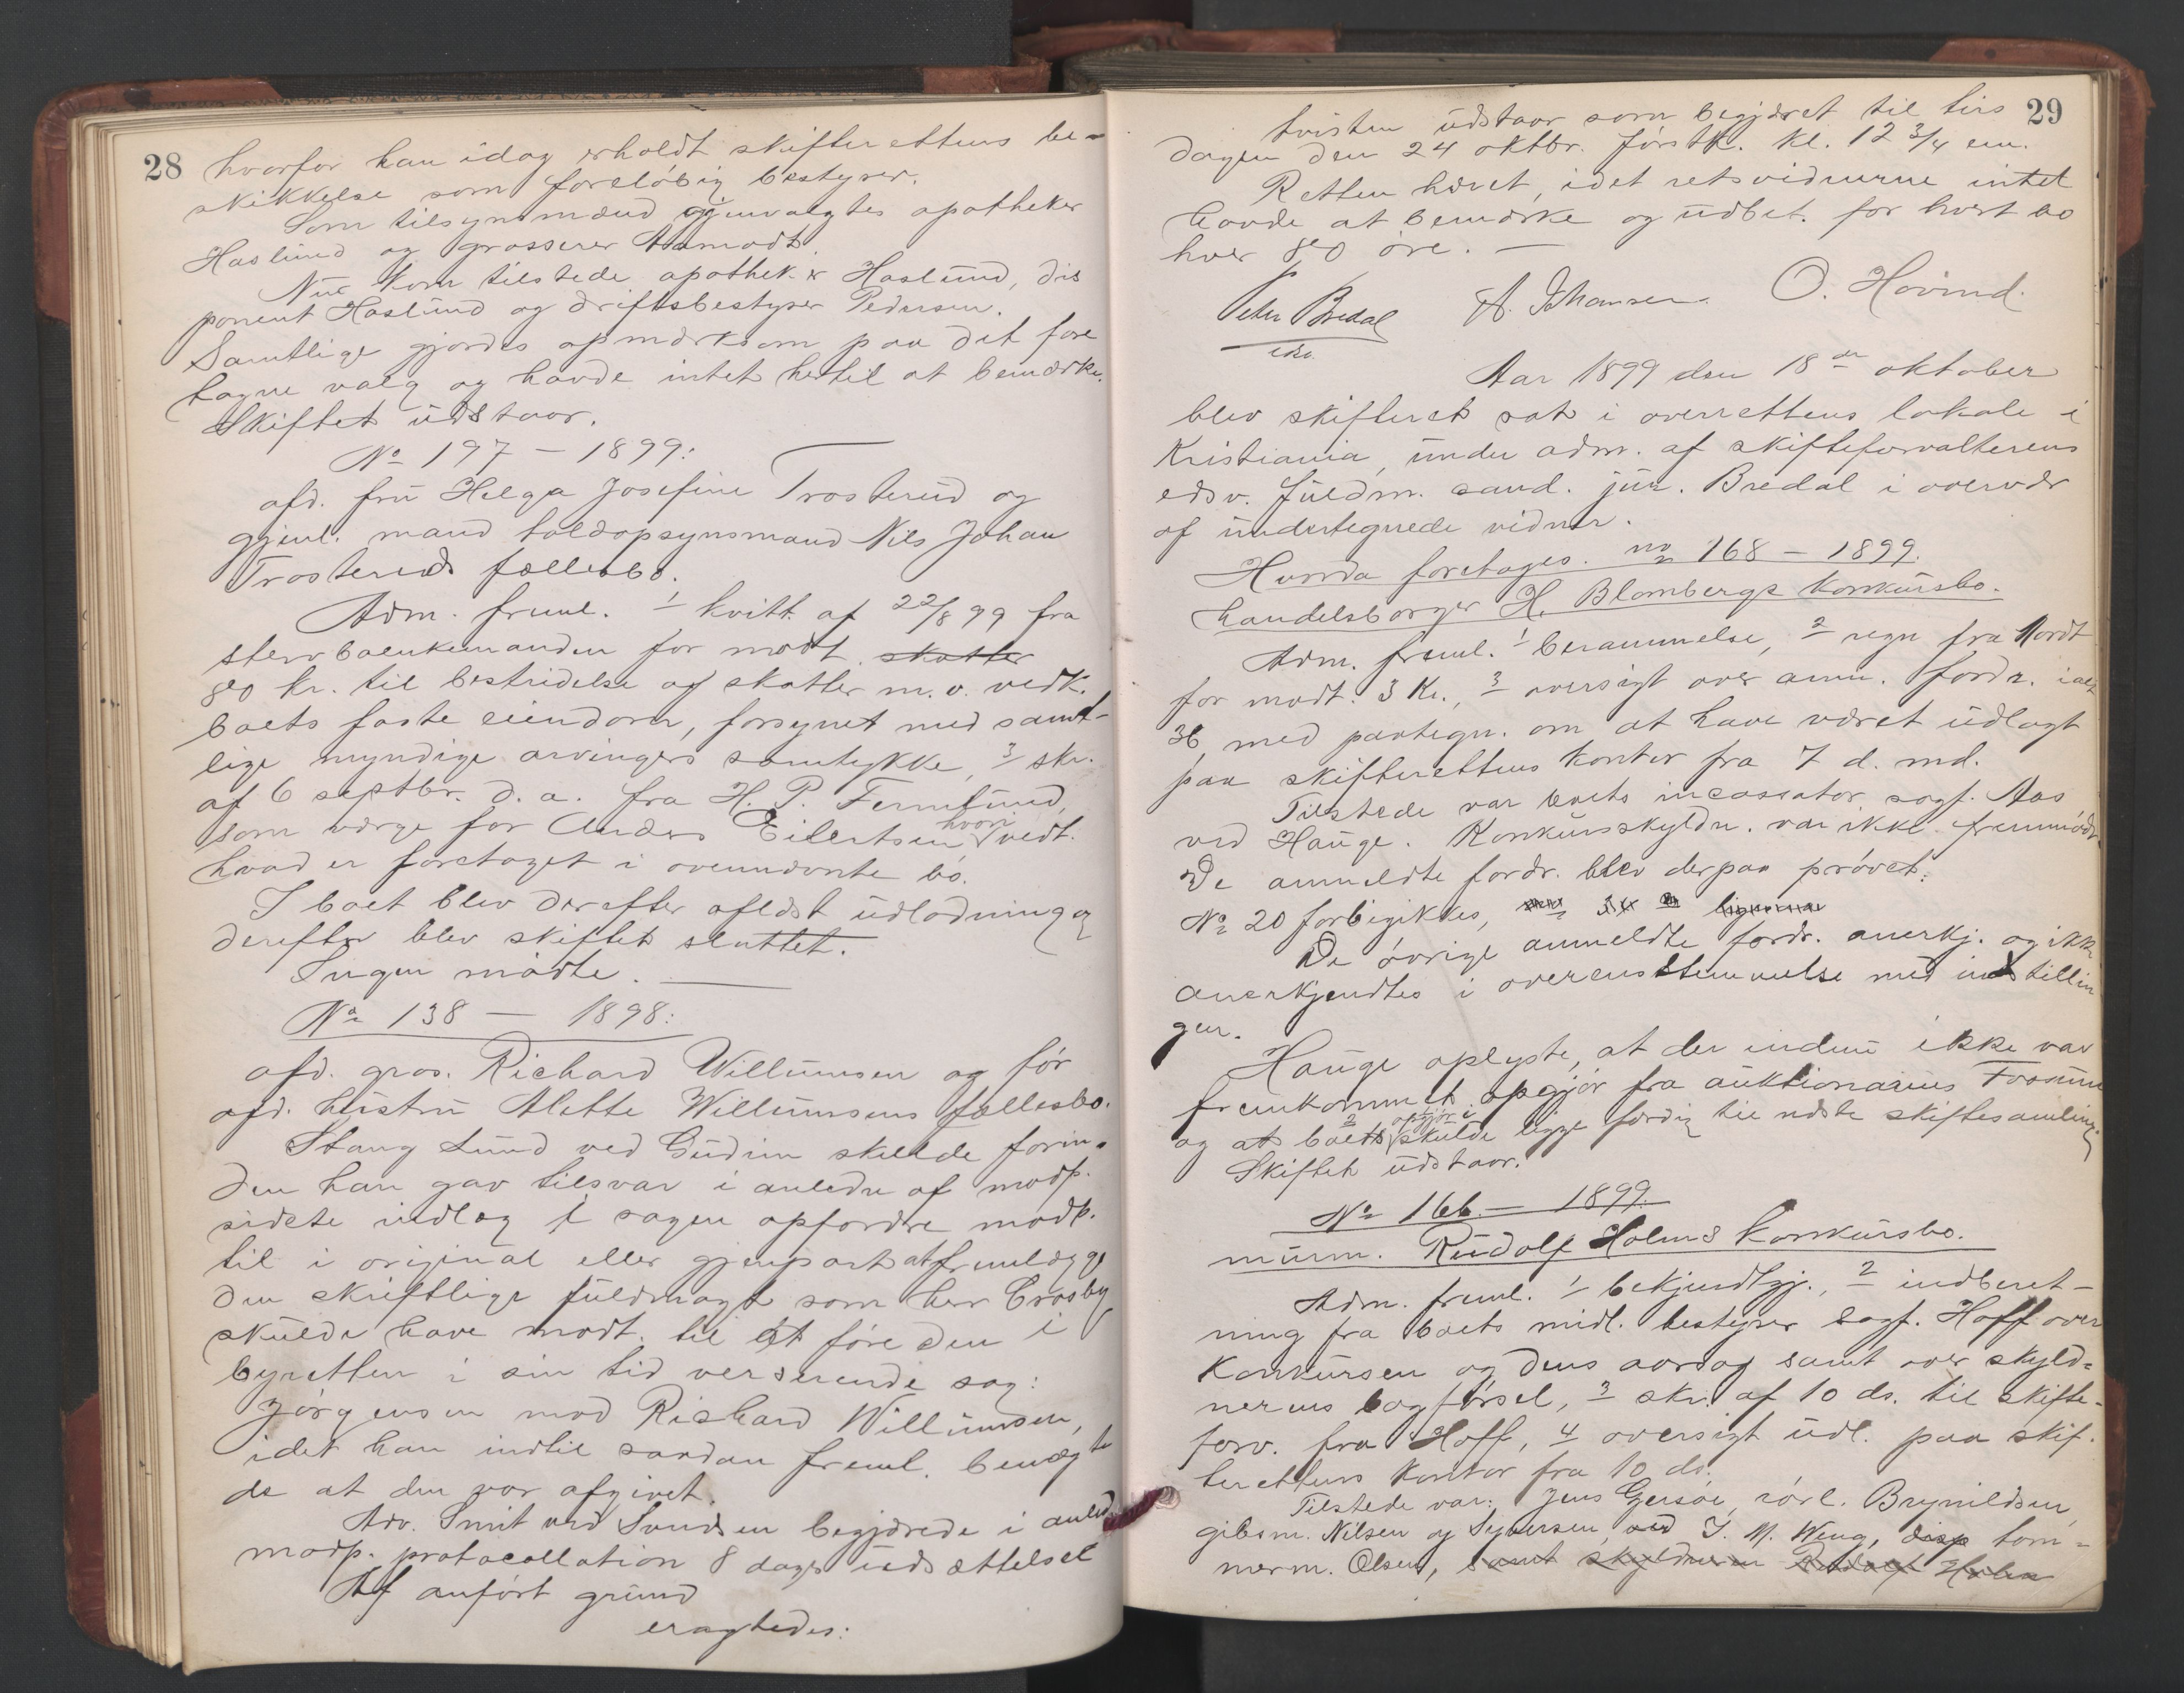 28
hvorfor han idag erholdt skifterettens be-
skikkelse som foreløbig bestyrer.
Som tilsynsmænd gjenvalgtes apotheker
Haslund og grosserer Aamodt.
Nu kom tilstede apotheker Haslund, dis
ponent Haslund og driftsbestyrer Pedersen.
Samtlige gjordes opmærksom paa det fore
tagne valg og havde intet hertil at bemærke.
Skiftet udstaar.
No 197 - 1899:
afd. fru Helga Josefine Trosterud og
gjenl. mand toldopsynsmand Nils Johan
Trosteruds fællesbo.
Adm. freml. 1 kvitt. af 22/8 99 fra
stervboenkemanden for modt. skatter
80 kr. til bestridelse af skatter m. v. vedk.
boets faste eiendom, forsynet med samt-
lige myndige arvingers samtykke, 3 skr.
af 6 septbr. d. a. fra H. P. Fernlund,
som værge for Anders Eilertsen hvori vedt.
hvad er foretaget i ovennævnte bo.
I boet blev derefter afløst udlodning og
derefter blev skiftet sluttet.
Ingen mødte.
No 138 - 1898:
afd. gros. Richard Willumsen og før
afd. hustru Alette Willumsens fællesbo.
Stang Lund ved Gudim skulde forin-
den han gav tilsvar i anledn af modp.
sidste indlæg i sagen opfordre modp.
til i original eller gjenpart at fremlægge
den skriftlige fuldmagt som herr Crosby
skulde have modt. til at føre den i
byretten i sin tid verserende sag:
Jørgensen mod Richard Willumsen,
idet han indtil saadan freml. benægte
de at den var afgivet.
Adv. Smit ved Svendsen begjærede i anledn
modp. protocollation 8 dages udsættelse
Af anført grund
eragtedes:
29
tvisten udstaar som begjæret til tirs
dagen den 24 oktbr. førstk. kl. 12 3/4 em.
Retten hævet, idet retsvidnerne intet
havde at bemærke og udbet. for hvert bo
hver 80 øre. -
Peter Bredal A. Johansen. O. Hövind.
edsv.
Aar 1899 den 18de oktober
blev skifteret sat i overrettens lokale i
Kristiania, under adm. af skifteforvalterens
edsv. fuldm. cand. jur. Bredal i overvær
af undertegnede vidner.
Hvorda foretages. no 168 - 1899.
handelsborger H. Blombergs konkursbo.
Adm. freml. 1 berammelse, 2 regn fra Nordt
for modt. 3 Kr., 3 oversigt over anm. fordr. ialt
36, med paategn. om at have været udlagt
paa skifterettens kontor fra 7 d. md.
Tilstede var boets incassator sagf. Aas
ved Hauge. Konkursskyldn. var ikke fremmødt.
De anmeldte fordr. blev derpaa prøvet:
No 20 forbigikkes,
De øvrige anmeldte fordr. anerkj. og ikke
anerkjendtes i overensstemmelse med indstillin
gen.
Hauge oplyste, at der endnu ikke var
fremkommet opgjør fra auktionarius Fossum
og at boets opgjør i skulde ligge færdig til næste skiftesamling.
Skiftet udstaar.
No 166. - 1899.
murm. Rudolf Holms konkursbo.
Adm. freml. 1 bekjendtgj., 2 indberet-
ning fra boets midl. bestyrer sagf. Hoff over
konkursen og dens aarsag samt over skyld-
nerens bogførsel, 3 skr. af 10 ds. til skifte-
forv. fra Hoff, 4 oversigt udl. paa skif.
terettens kontor fra 10 ds.
Tilstede var: Jens Gersøe, rørl. Brynildsen,
gibsm. Nilsen og Syversen ved J. M. Weng, disp tøm-
merm. Olsen, samt skyldneren Rudolf Holm